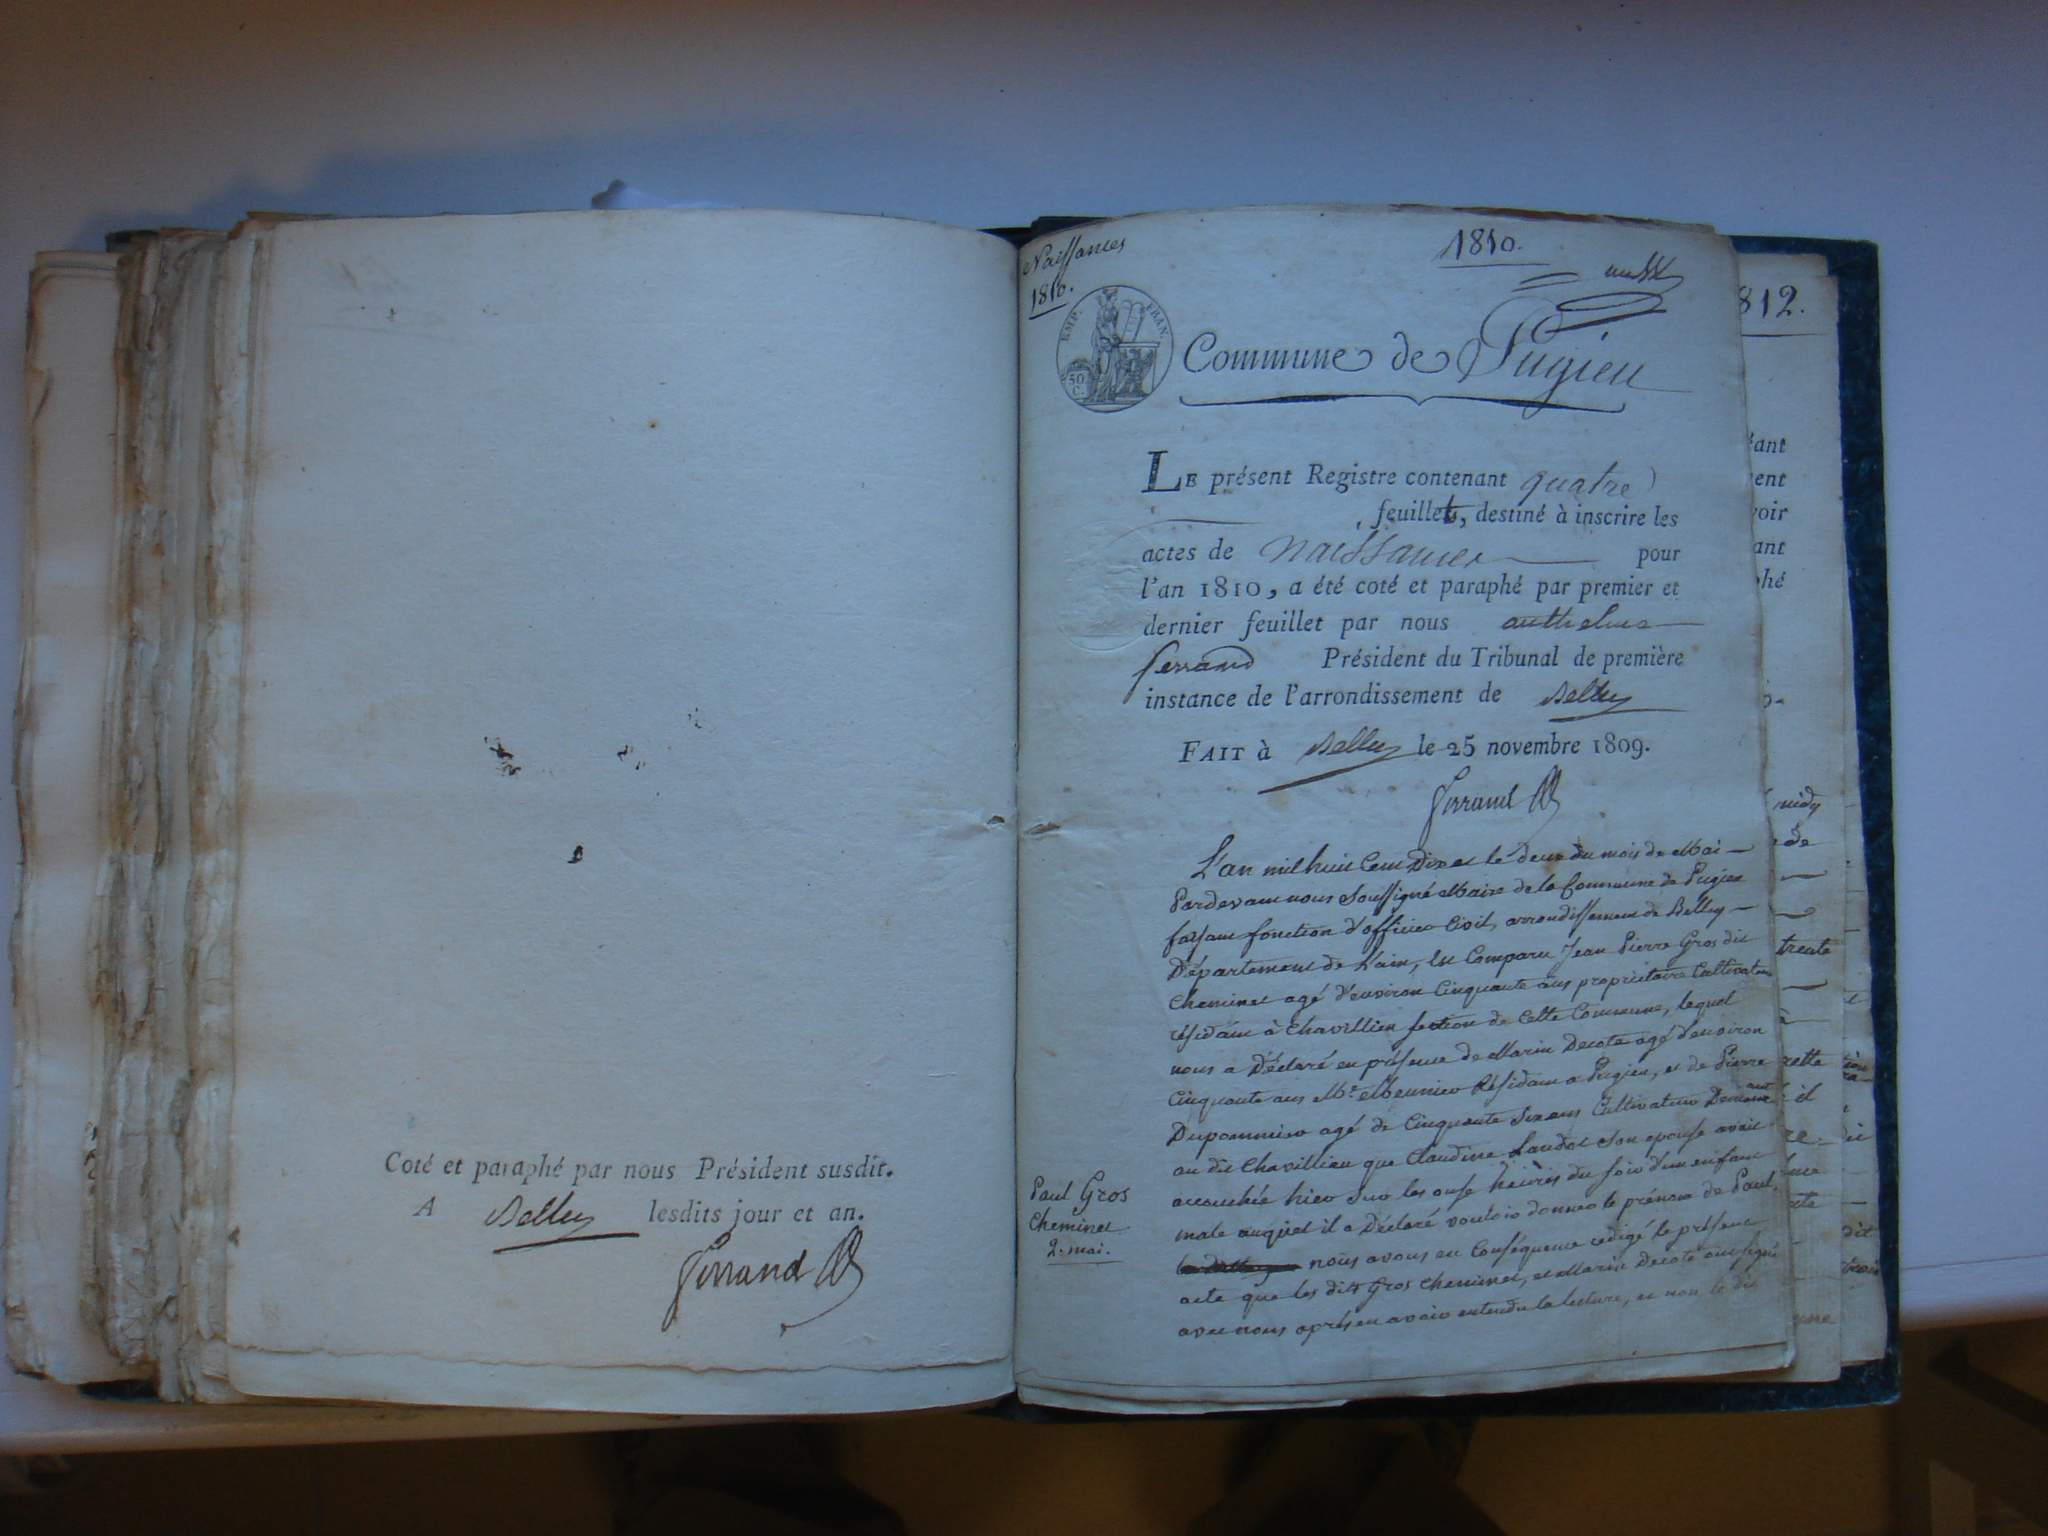 Coté et paraphé par nous Président susdit.
A Belley lesdits jour et an.
Ferrand
Naissances
1810.
1810.
EMP. FRAN.
50 C.
Commune de Pugieu
LE présent Registre contenant quatre
feuillets, destiné à inscrire les
actes de naissances pour
l'an 1810, a été coté et paraphé par premier et
dernier feuillet par nous anthelme
ferrand Président du Tribunal de première
instance de l'arrondissement de Belley
FAIT à Belley le 25 novembre 1809.
Ferrand
L'an mil huit Cent Dix et le deux du mois de Mai
Pardevant nous Soussigné Maire de la Commune de Pugieu
faisant fonction d'officier Civil, arrondissement de Belley
Département de L'ain, Est Comparu Jean Pierre Gros dit
Cheminet agé d'environ Cinquante ans propriétaire Cultivateur
résidant à Chavillieu section de Cette Commune, lequel
nous a Déclaré en présence de Marin Decote agé d'environ
Cinquante ans Md Meunier Résidant a Pugieu, et de Pierre
Duponnier agé de Cinquante Six ans Cultivateur Demeurant
au dit Chavillieu que Claudine Landot Son epouse avait
accouchée hier Sur les onse heures du soir d'un enfant
male auquel il a Déclaré vouloir donner le prénom de Paul,
nous avons en Conséquence redigé le présent
acte que les dits Gros Cheminet, et Marin Decote ont signé
avec nous après en avoir entendu la lecture, et non le dit
Paul Gros
Cheminet
2. mai.
812.